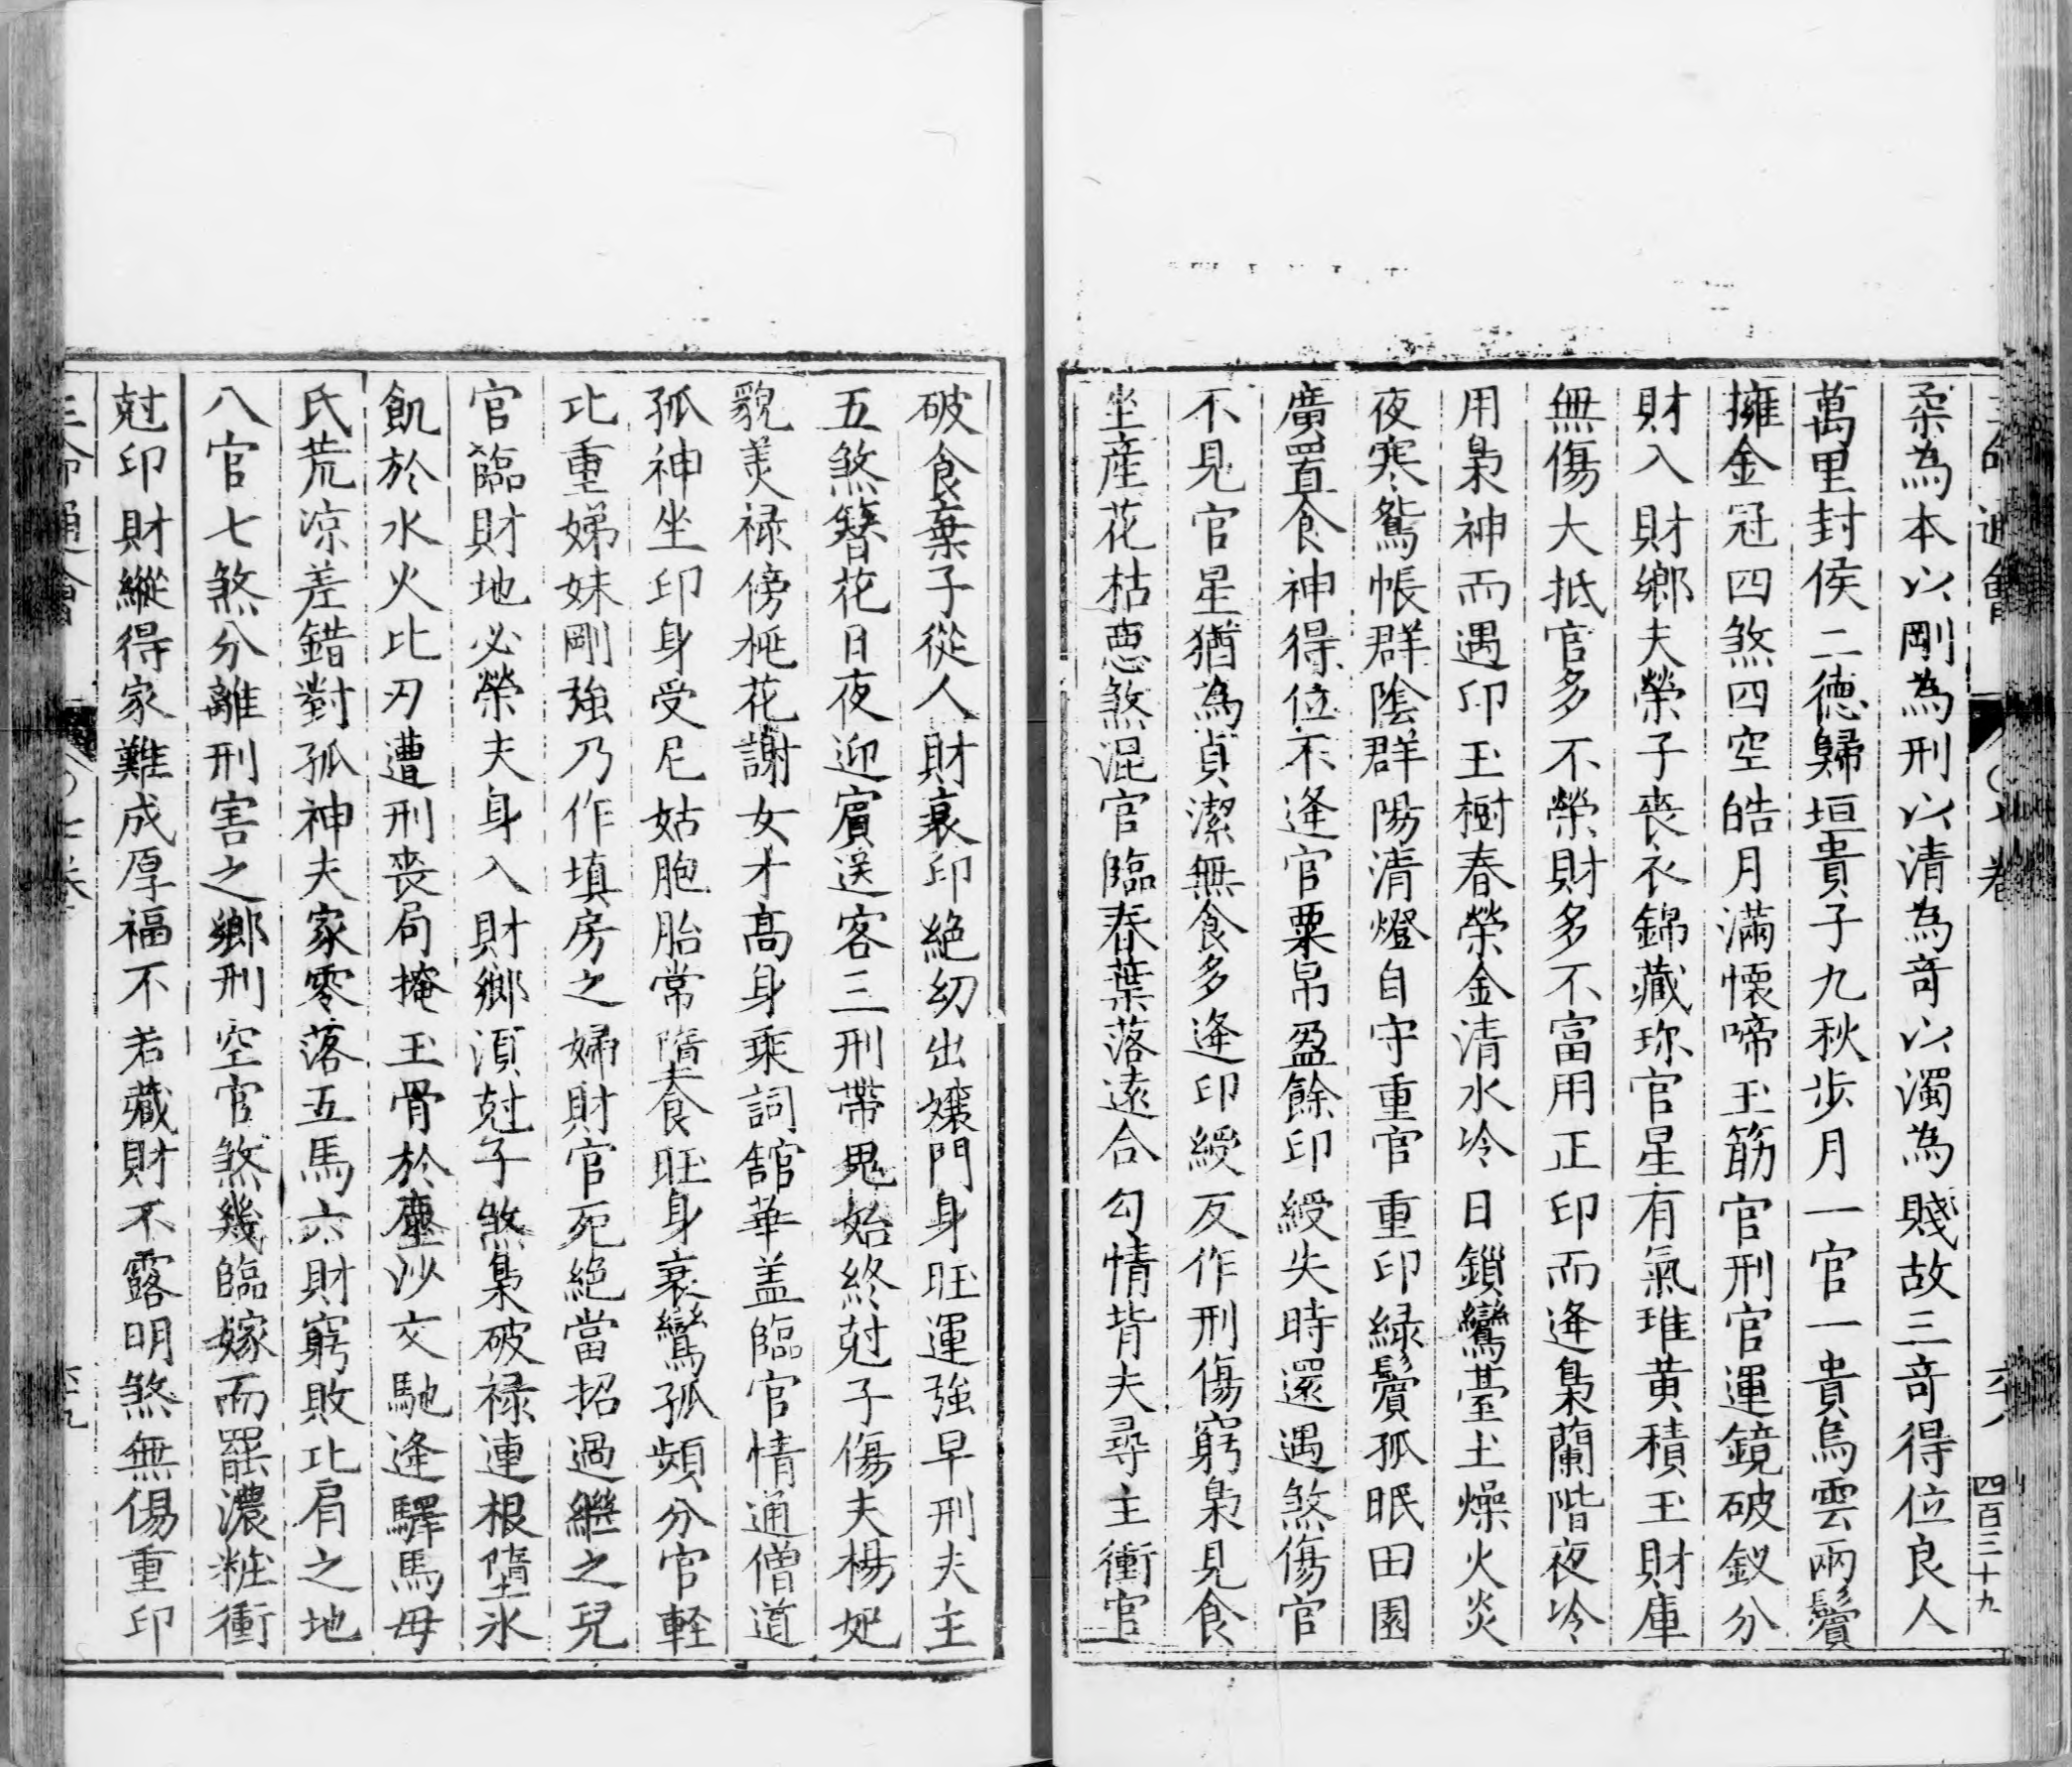 三命通會
七卷
六十八
四百三十九
柔為本以剛為刑以清為竒以濁為賤故三竒得位良人
萬里封侯二德歸垣貴子九秋步月一官一貴烏雲兩鬢
擁金冠四煞四空皓月滿懷啼玉筯官刑官運鏡破釵分
財入財鄉夫榮子喪衣錦藏珎官星有氣堆黄積玉財庫
無傷大抵官多不榮財多不富用正印而逢梟蘭階夜冷
用梟神而遇印玉樹春榮金清水冷日鎖鸞臺土燥火炎
夜寒鴛帳群陰群陽清燈自守重官重印緑鬢孤眠田園
廣置食神得位不逢官粟帛盈餘印綬失時還遇煞傷官
不見官星猶為貞潔無食多逢印綬反作刑傷窮梟見食
坐産花枯惡煞混官臨春葉落遠合勾情背夫尋主衝官
破食棄子從人財衰印絕幼出孃門身旺運強早刑夫主
五煞簪花日夜迎賓送客三刑帶鬼始終尅子傷夫楊妃
貌美禄傍桃花謝女才髙身乘詞舘華盖臨官情通僧道
孤神坐印身受尼姑胞胎常墮食旺身衰鸞孤頻分官軽
比重娣妹剛強乃作填房之婦財官死絕當招過繼之兒
官臨財地必榮夫身入財鄉湏尅子煞梟破禄連根墮氷
飢於水火比刃遭刑喪局掩玉骨於塵沙交馳逢驛馬毋
氏荒凉差錯對孤神夫家零落五馬六財窮敗比肩之地
八官七煞分離刑害之鄉刑空官煞幾臨嫁而罷濃粧衝
尅印財縱得家難成厚福不若藏財不露明煞無傷重印
三命通會
七卷
六十九